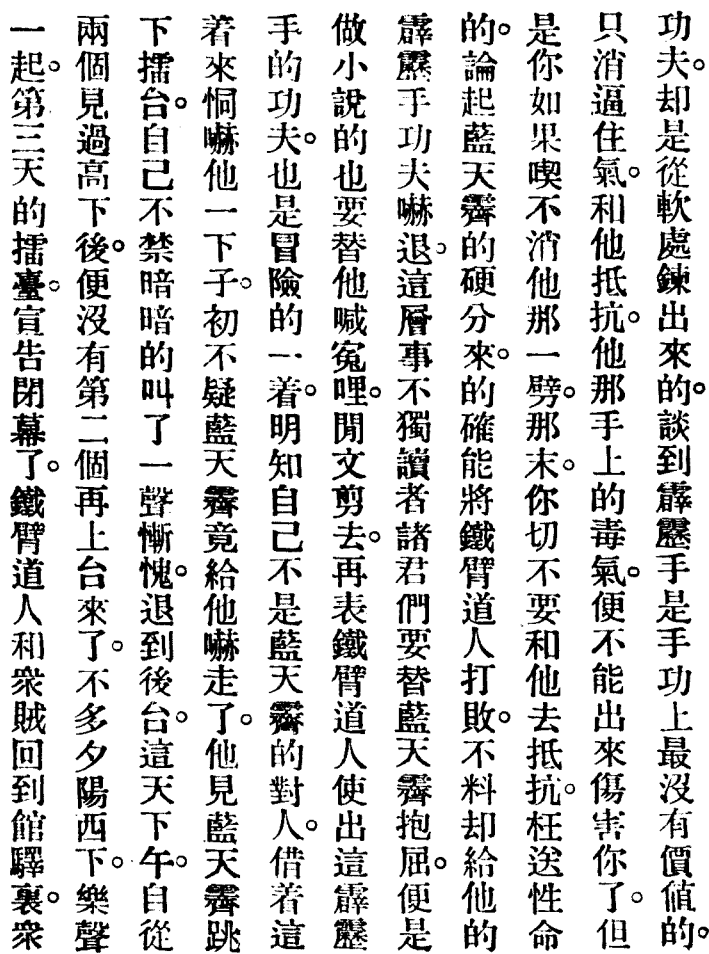 功夫。却是從軟處鍊出來的。談到霹靂手是手功上最沒有價値的。
只消逼住氣。和他抵抗。他那手上的毒氣。便不能出來傷害你了。但
是你如果喫不消他那一劈。那末。你切不要和他去抵抗。枉送性命
的。論起藍天霽的硬分來。的確能將鐵臂道人打敗。不料却給他的
霹靂手功夫嚇退。這層事不獨讀者諸君們要替藍天霽抱屈。便是
做小說的也要替他喊寃哩。閒文剪去。再表鐵臂道人使出這霹靂
手的功夫。也是冒險的一着。明知自己不是藍天霽的對人。借着這
着來恫嚇他一下子。初不疑藍天霽竟給他嚇走了。他見藍天霽跳
下擂台。自己不禁暗暗的叫了一聲慚愧。退到後台。這天下午。自從
兩個見過高下後。便沒有第二個再上台來了。不多夕陽西下。樂聲
一起。第三天的擂臺。宣告閉幕了。鐵臂道人和衆賊回到館驛裏。衆